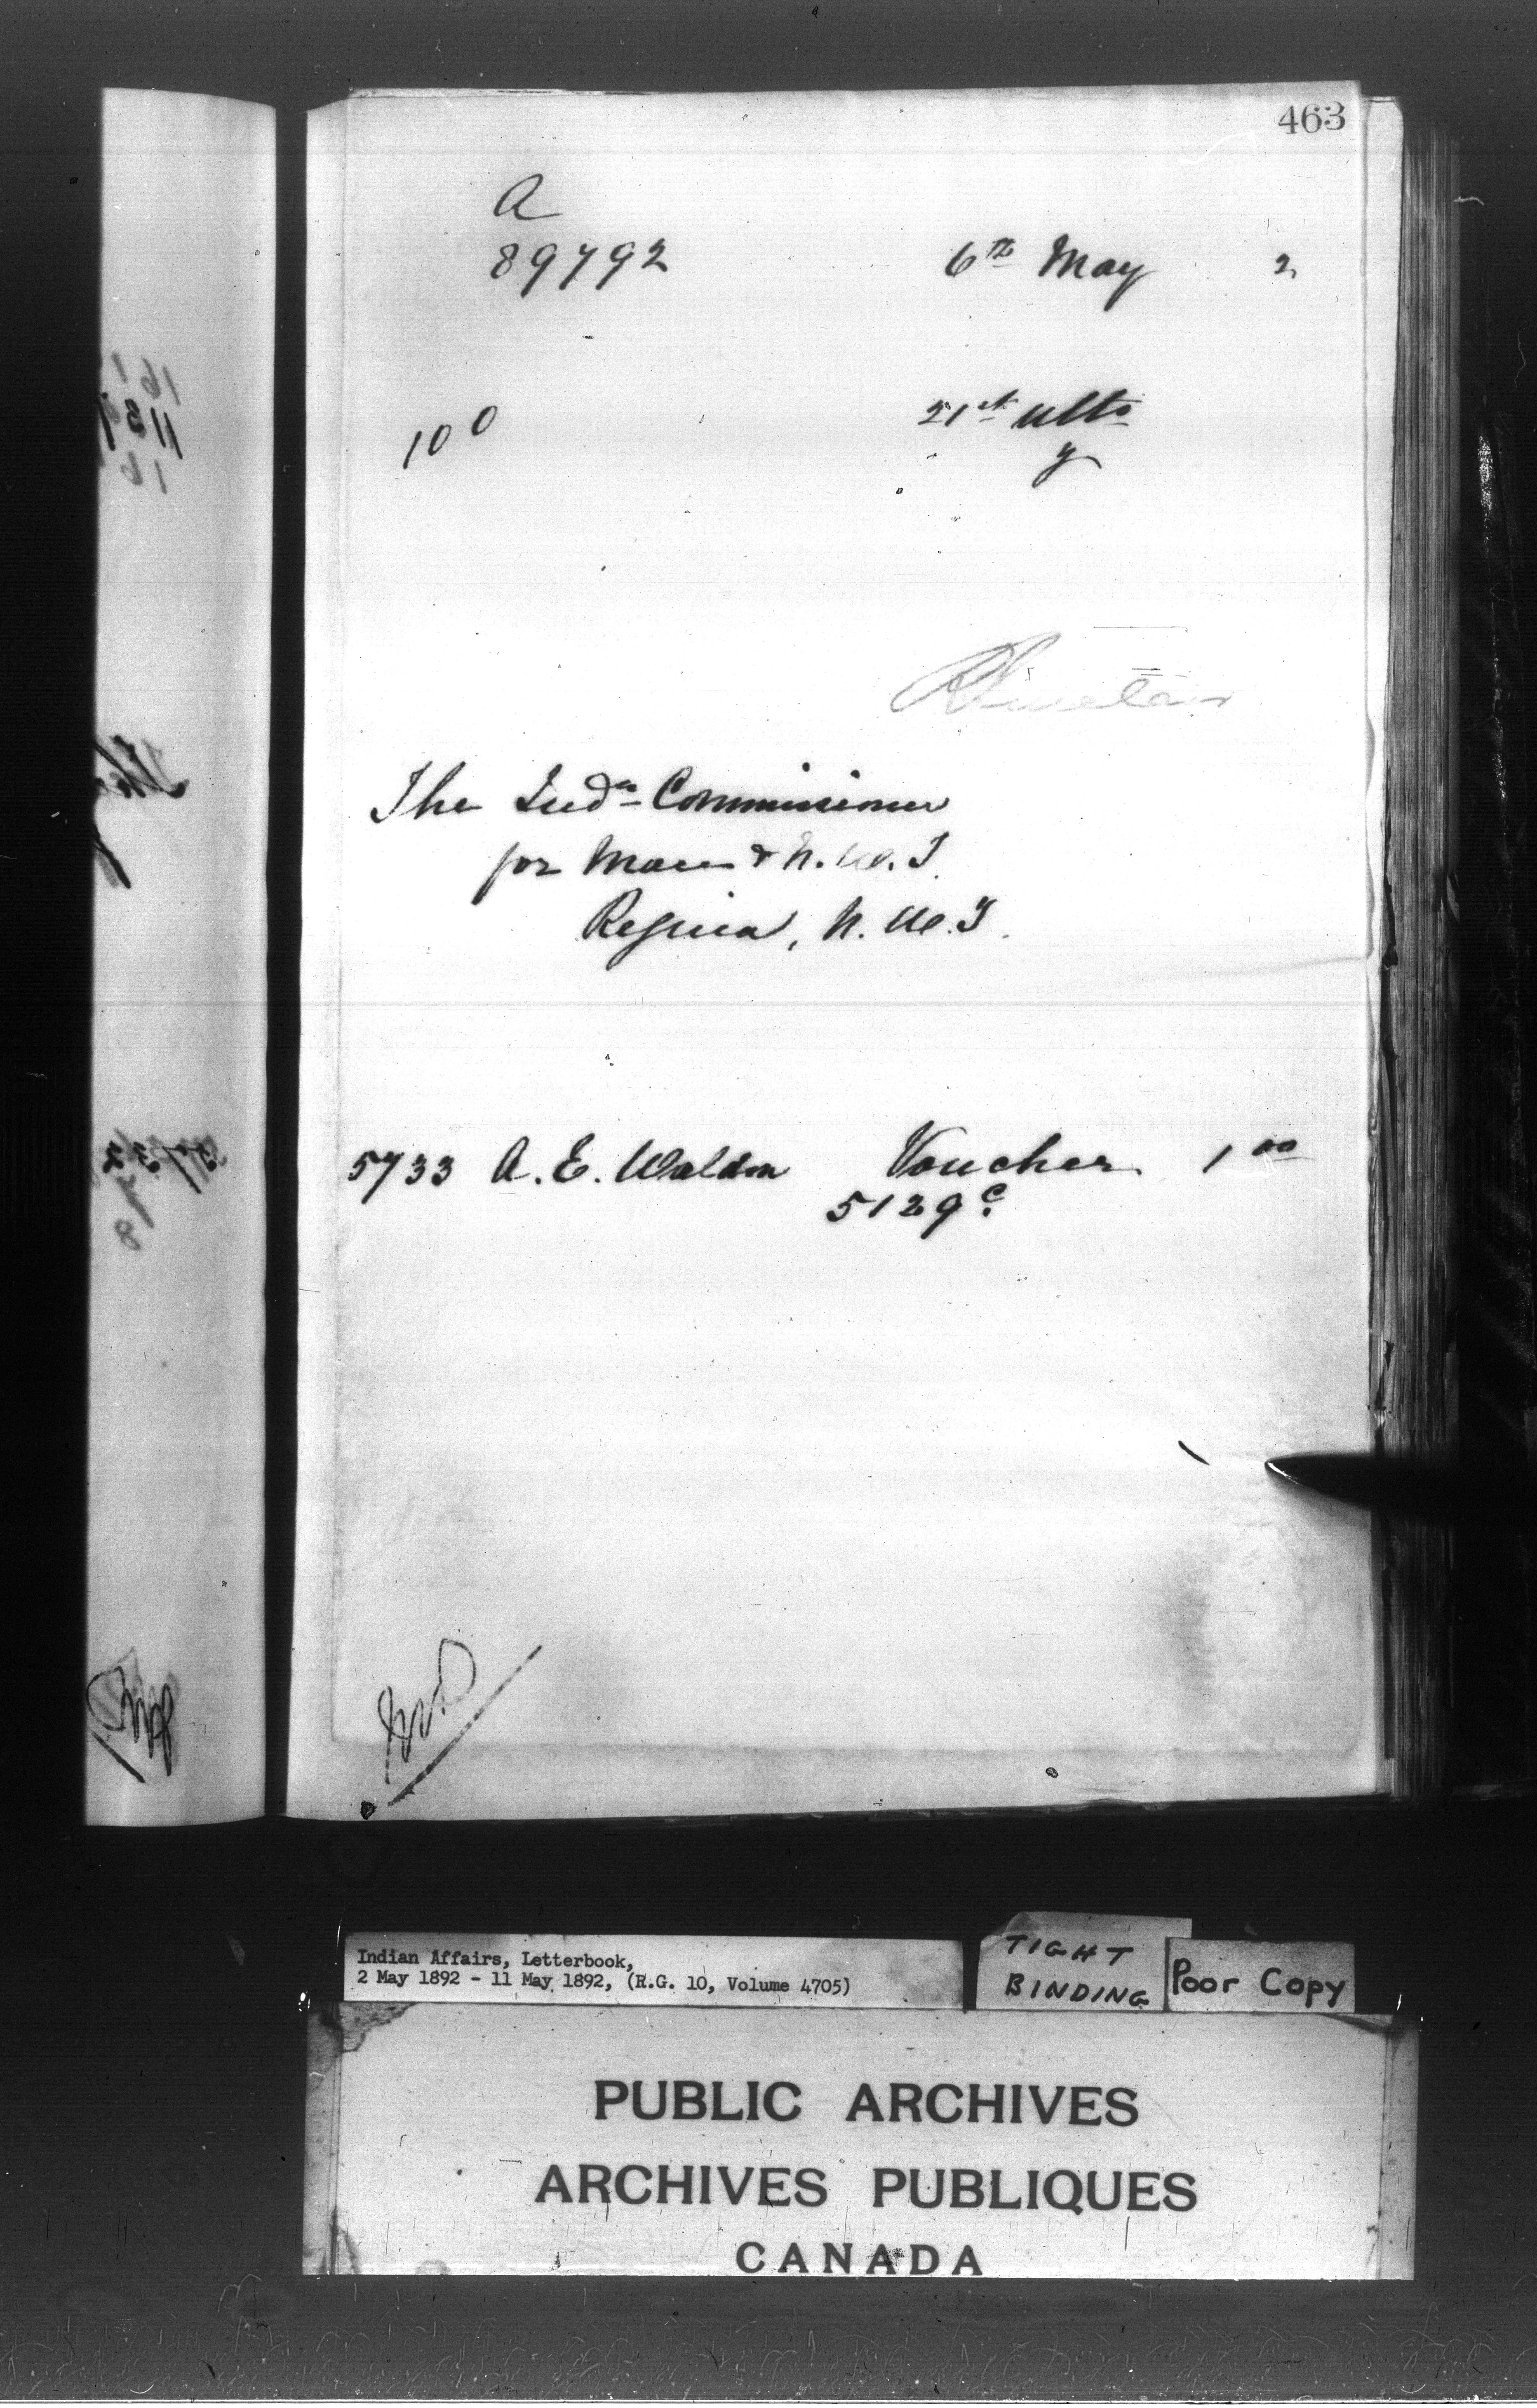 463
A
89792 6th May 2
100 21st ulto
y
R Sinclair
The Indn Commissioner
for Man & N.W.T.
Regina, N.W.T.
5733 A. E. Waldon Voucher 1 00
5129 c.
Indian Affairs, Letterbook,
2 May 1892 - 11 May 1892, (R.G. 10, Volume 4705)
TIGHT
BINDING
Poor Copy
PUBLIC ARCHIVES
ARCHIVES PUBLIQUES
CANADA